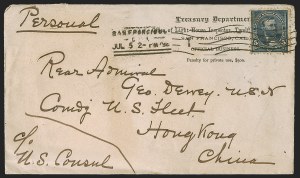 Personal
Treasury Department
SAN FRANCISCO, CAL.
OFFICIAL BUSINESS.
Penalty for private use, $300.
SAN FRANCISCO
JUL 5 2-PM '98
Rear Admiral
Geo. Dewey, U.S.N
Comdg U.S. Fleet
Hong Kong
China
c/o
U.S. Consul